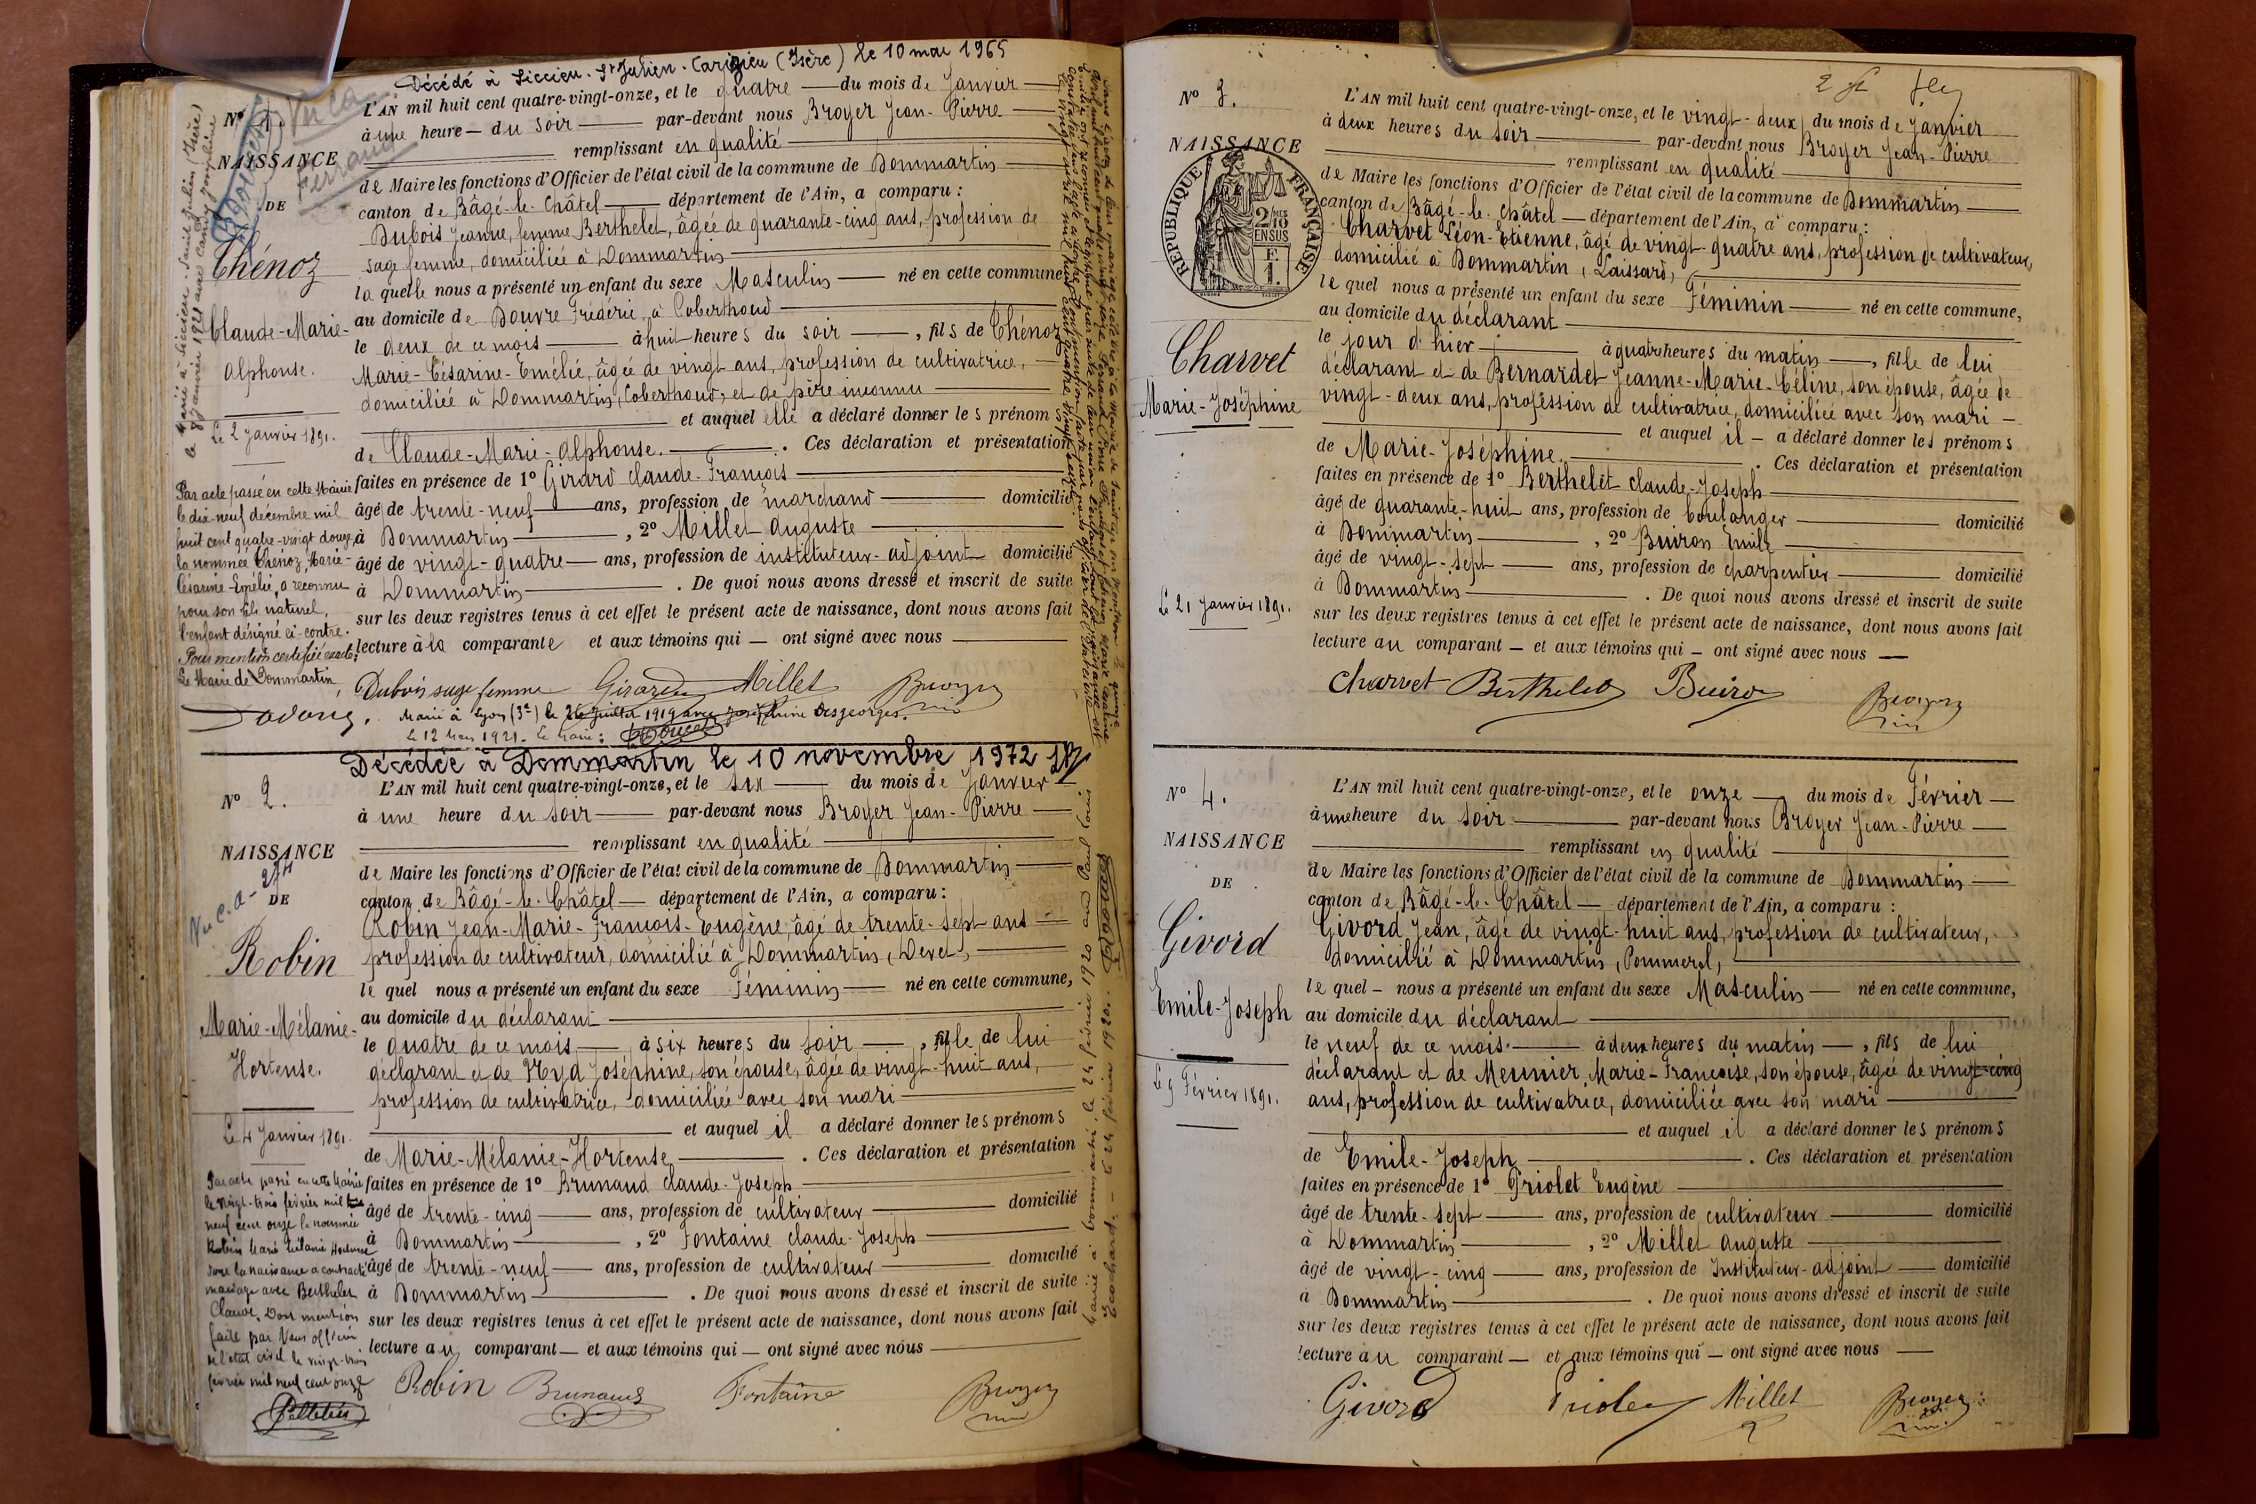 Décédé à Siccieu-St Julien-Carizieu (Isère) le 10 mai 1965
N° 1.
NAISSANCE
DE
Chénoz
Claude-Marie-
Alphonse.
Le 2 Janvier 1891.
Par acte passé en cette Mairie
le dix-neuf décembre mil
huit cent quatre-vingt douze,
la nommée Chénoz, Marie-
Césarine-Emélie, a reconnu
pour son fils naturel,
l'enfant désigné ci-contre.
Pour mention certifiée exacte;
Le Maire de Dommartin,
L'AN mil huit cent quatre-vingt-onze, et le quatre du mois de Janvier
à une heure du soir par-devant nous Broyer Jean-Pierre
remplissant en qualité
de Maire les fonctions d'Officier de l'état civil de la commune de Dommartin
canton de Bâgé-le-Châtel département de l'Ain, a comparu :
Dubois Jeanne, femme Berthelet, âgée de quarante-cinq ans, profession de
sage femme, domiciliée à Dommartin
la quelle nous a présenté un enfant du sexe Masculin né en cette commune,
au domicile de Bouvre Frédéric, à Coberthoud
le deux de ce mois à huit heures du soir, fils de Chénoz
Marie-Césarine-Emélie, âgée de vingt ans, profession de cultivatrice,
domiciliée à Dommartin, Coberthoud, et de père inconnu
et auquel elle a déclaré donner les prénoms
de Claude-Marie-Alphonse. Ces déclaration et présentation
faites en présence de 1° Girard Claude-François
âgé de trente-neuf ans, profession de marchand domicilié
à Dommartin, 2° Millet Auguste
âgé de vingt-quatre ans, profession de instituteur-adjoint domicilié
à Dommartin. De quoi nous avons dressé et inscrit de suite
sur les deux registres tenus à cet effet le présent acte de naissance, dont nous avons fait
lecture à la comparante et aux témoins qui ont signé avec nous
Dubois sage femme Girard Millet Broyer
Marié à Lyon (3e) le 26 Juillet 1919 avec Joséphine Desgeorges.
Le 12 Mars 1921. Le Maire:
Décédée à Dommartin le 10 novembre 1972
N° 2.
NAISSANCE
DE
Robin
Marie-Mélanie-
Hortense.
Le 4 Janvier 1891.
Par acte passé en cette Mairie
le vingt-trois février mil
neuf cent onze la nommée
Robin Marie Mélanie Hortense
dont la naissance a contracté
mariage avec Berthelet
Claude. Dont mention
faite par Nous officier
de l'état civil le vingt-trois
février mil neuf cent onze
Pelletier
L'AN mil huit cent quatre-vingt-onze, et le six du mois de Janvier
à une heure du soir par-devant nous Broyer Jean-Pierre
remplissant en qualité
de Maire les fonctions d'Officier de l'état civil de la commune de Dommartin
canton de Bâgé-le-Châtel département de l'Ain, a comparu :
Robin Jean-Marie-François-Eugène, âgé de trente-sept ans
profession de cultivateur, domicilié à Dommartin, Devet,
le quel nous a présenté un enfant du sexe Féminin né en cette commune,
au domicile du déclarant
le quatre de ce mois à six heures du soir, fille de lui
déclarant et de Myd Joséphine, son épouse, âgée de vingt-huit ans,
profession de cultivatrice, domiciliée avec son mari
et auquel il a déclaré donner les prénoms
de Marie-Mélanie-Hortense. Ces déclaration et présentation
faites en présence de 1° Brunaud Claude-Joseph
âgé de trente-cinq ans, profession de cultivateur domicilié
à Dommartin, 2° Fontaine Claude-Joseph
âgé de trente-neuf ans, profession de cultivateur domicilié
à Dommartin. De quoi nous avons dressé et inscrit de suite
sur les deux registres tenus à cet effet le présent acte de naissance, dont nous avons fait
lecture au comparant et aux témoins qui ont signé avec nous
Robin Brunaud Fontaine Broyer
N° 3.
NAISSANCE
RÉPUBLIQUE FRANÇAISE
Charvet
Marie-Joséphine
Le 21 Janvier 1891.
L'AN mil huit cent quatre-vingt-onze, et le vingt-deux du mois de Janvier
à deux heures du soir par-devant nous Broyer Jean-Pierre
remplissant en qualité
de Maire les fonctions d'Officier de l'état civil de la commune de Dommartin
canton de Bâgé-le-Châtel département de l'Ain, a comparu :
Charvet Léon-Etienne, âgé de vingt-quatre ans, profession de cultivateur,
domicilié à Dommartin, Laissard,
le quel nous a présenté un enfant du sexe Féminin né en cette commune,
au domicile du déclarant
le jour d'hier à quatre heures du matin, fille de lui
déclarant et de Bernardet Jeanne-Marie-Céline, son épouse, âgée de
vingt-deux ans, profession de cultivatrice, domiciliée avec son mari
et auquel il a déclaré donner les prénoms
de Marie-Joséphine. Ces déclaration et présentation
faites en présence de 1° Berthelet Claude-Joseph
âgé de quarante-huit ans, profession de boulanger domicilié
à Dommartin, 2° Buiron Emile
âgé de vingt-sept ans, profession de charpentier domicilié
à Dommartin. De quoi nous avons dressé et inscrit de suite
sur les deux registres tenus à cet effet le présent acte de naissance, dont nous avons fait
lecture au comparant et aux témoins qui ont signé avec nous
Charvet Berthelet Buiron Broyer
N° 4.
NAISSANCE
DE
Givord
Emile-Joseph
Le 9 Février 1891.
L'AN mil huit cent quatre-vingt-onze, et le onze du mois de Février
à une heure du soir par-devant nous Broyer Jean-Pierre
remplissant en qualité
de Maire les fonctions d'Officier de l'état civil de la commune de Dommartin
canton de Bâgé-le-Châtel département de l'Ain, a comparu :
Givord Jean, âgé de vingt-huit ans, profession de cultivateur,
domicilié à Dommartin, Pommerel,
le quel nous a présenté un enfant du sexe Masculin né en cette commune,
au domicile du déclarant
le neuf de ce mois à deux heures du matin, fils de lui
déclarant et de Meunier Marie-Françoise, son épouse, âgée de vingt-cinq
ans, profession de cultivatrice, domiciliée avec son mari
et auquel il a déclaré donner les prénoms
de Emile-Joseph. Ces déclaration et présentation
faites en présence de 1° Priolet Eugène
âgé de trente-sept ans, profession de cultivateur domicilié
à Dommartin, 2° Millet Auguste
âgé de vingt-cinq ans, profession de Instituteur-adjoint domicilié
à Dommartin. De quoi nous avons dressé et inscrit de suite
sur les deux registres tenus à cet effet le présent acte de naissance, dont nous avons fait
lecture au comparant et aux témoins qui ont signé avec nous
Givord Priolet Millet Broyer